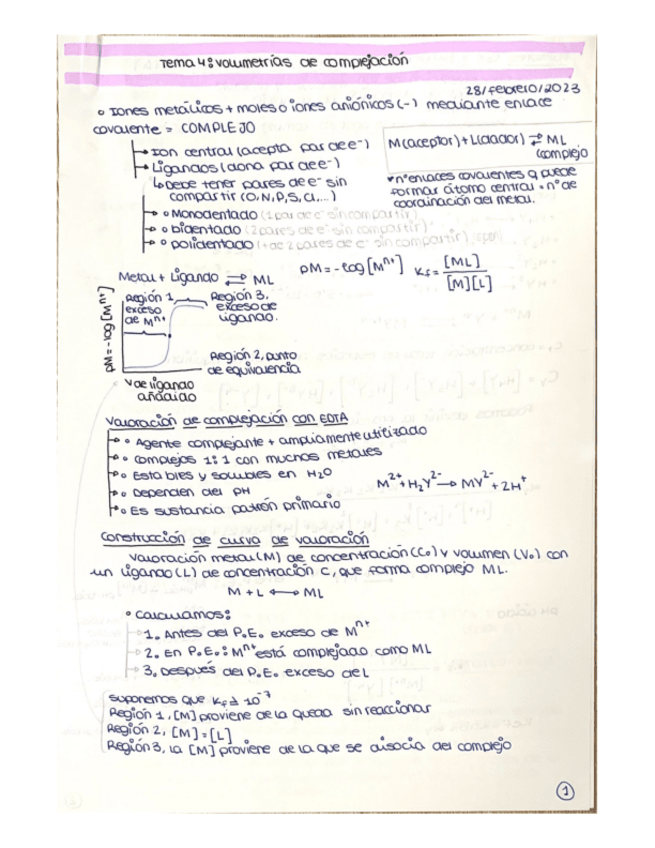 Tema 4: volumetrías de complejación
28/febrero/2023
o Iones metálicos + moles o iones aniónicos (-) mediante enlace
covalente = COMPLEJO
Ion central (acepta par de e⁻)
Ligandos (dona par de e⁻)
Debe tener pares de e⁻ sin
compartir (O, N, P, S, Cl,...)
o Monodentado (1 par de e⁻ sin compartir)
o bidentado (2 pares de e⁻ sin compartir)
o polidentado (+ de 2 pares de e⁻ sin compartir)
M(aceptor) + L(dador) ⇄ ML
complejo
nº enlaces covalentes q puede
formar átomo central = nº de
coordinación del metal.
Metal + Ligando ⇄ ML
pM = -log [Mⁿ⁺]
Kf = [ML] / [M][L]
pM = -log [Mⁿ⁺]
Región 1,
exceso
de Mⁿ⁺
Región 3.
exceso de
ligando.
Región 2, punto
de equivalencia
V de ligando
añadido
Valoración de complejación con EDTA
o Agente complejante + ampliamente utilizado
o Complejos 1:1 con muchos metales
o Estables y solubles en H₂O
o Dependen del pH
o Es sustancia patrón primario
M²⁺ + H₂Y²⁻ → MY²⁻ + 2H⁺
Construcción de curva de valoración
Valoración metal (M) de concentración (C₀) y volumen (V₀) con
un ligando (L) de concentración C, que forma complejo ML.
M + L ⟷ ML
o Calculamos:
1. Antes del P.E. exceso de Mⁿ⁺
2. En P.E.: Mⁿ⁺ está complejado como ML
3. Después del P.E. exceso de L
Suponemos que Kf à 10⁻⁷
Región 1, [M] proviene de la queda sin reaccionar
Región 2, [M] = [L]
Región 3, la [M] proviene de la que se disocia del complejo
1